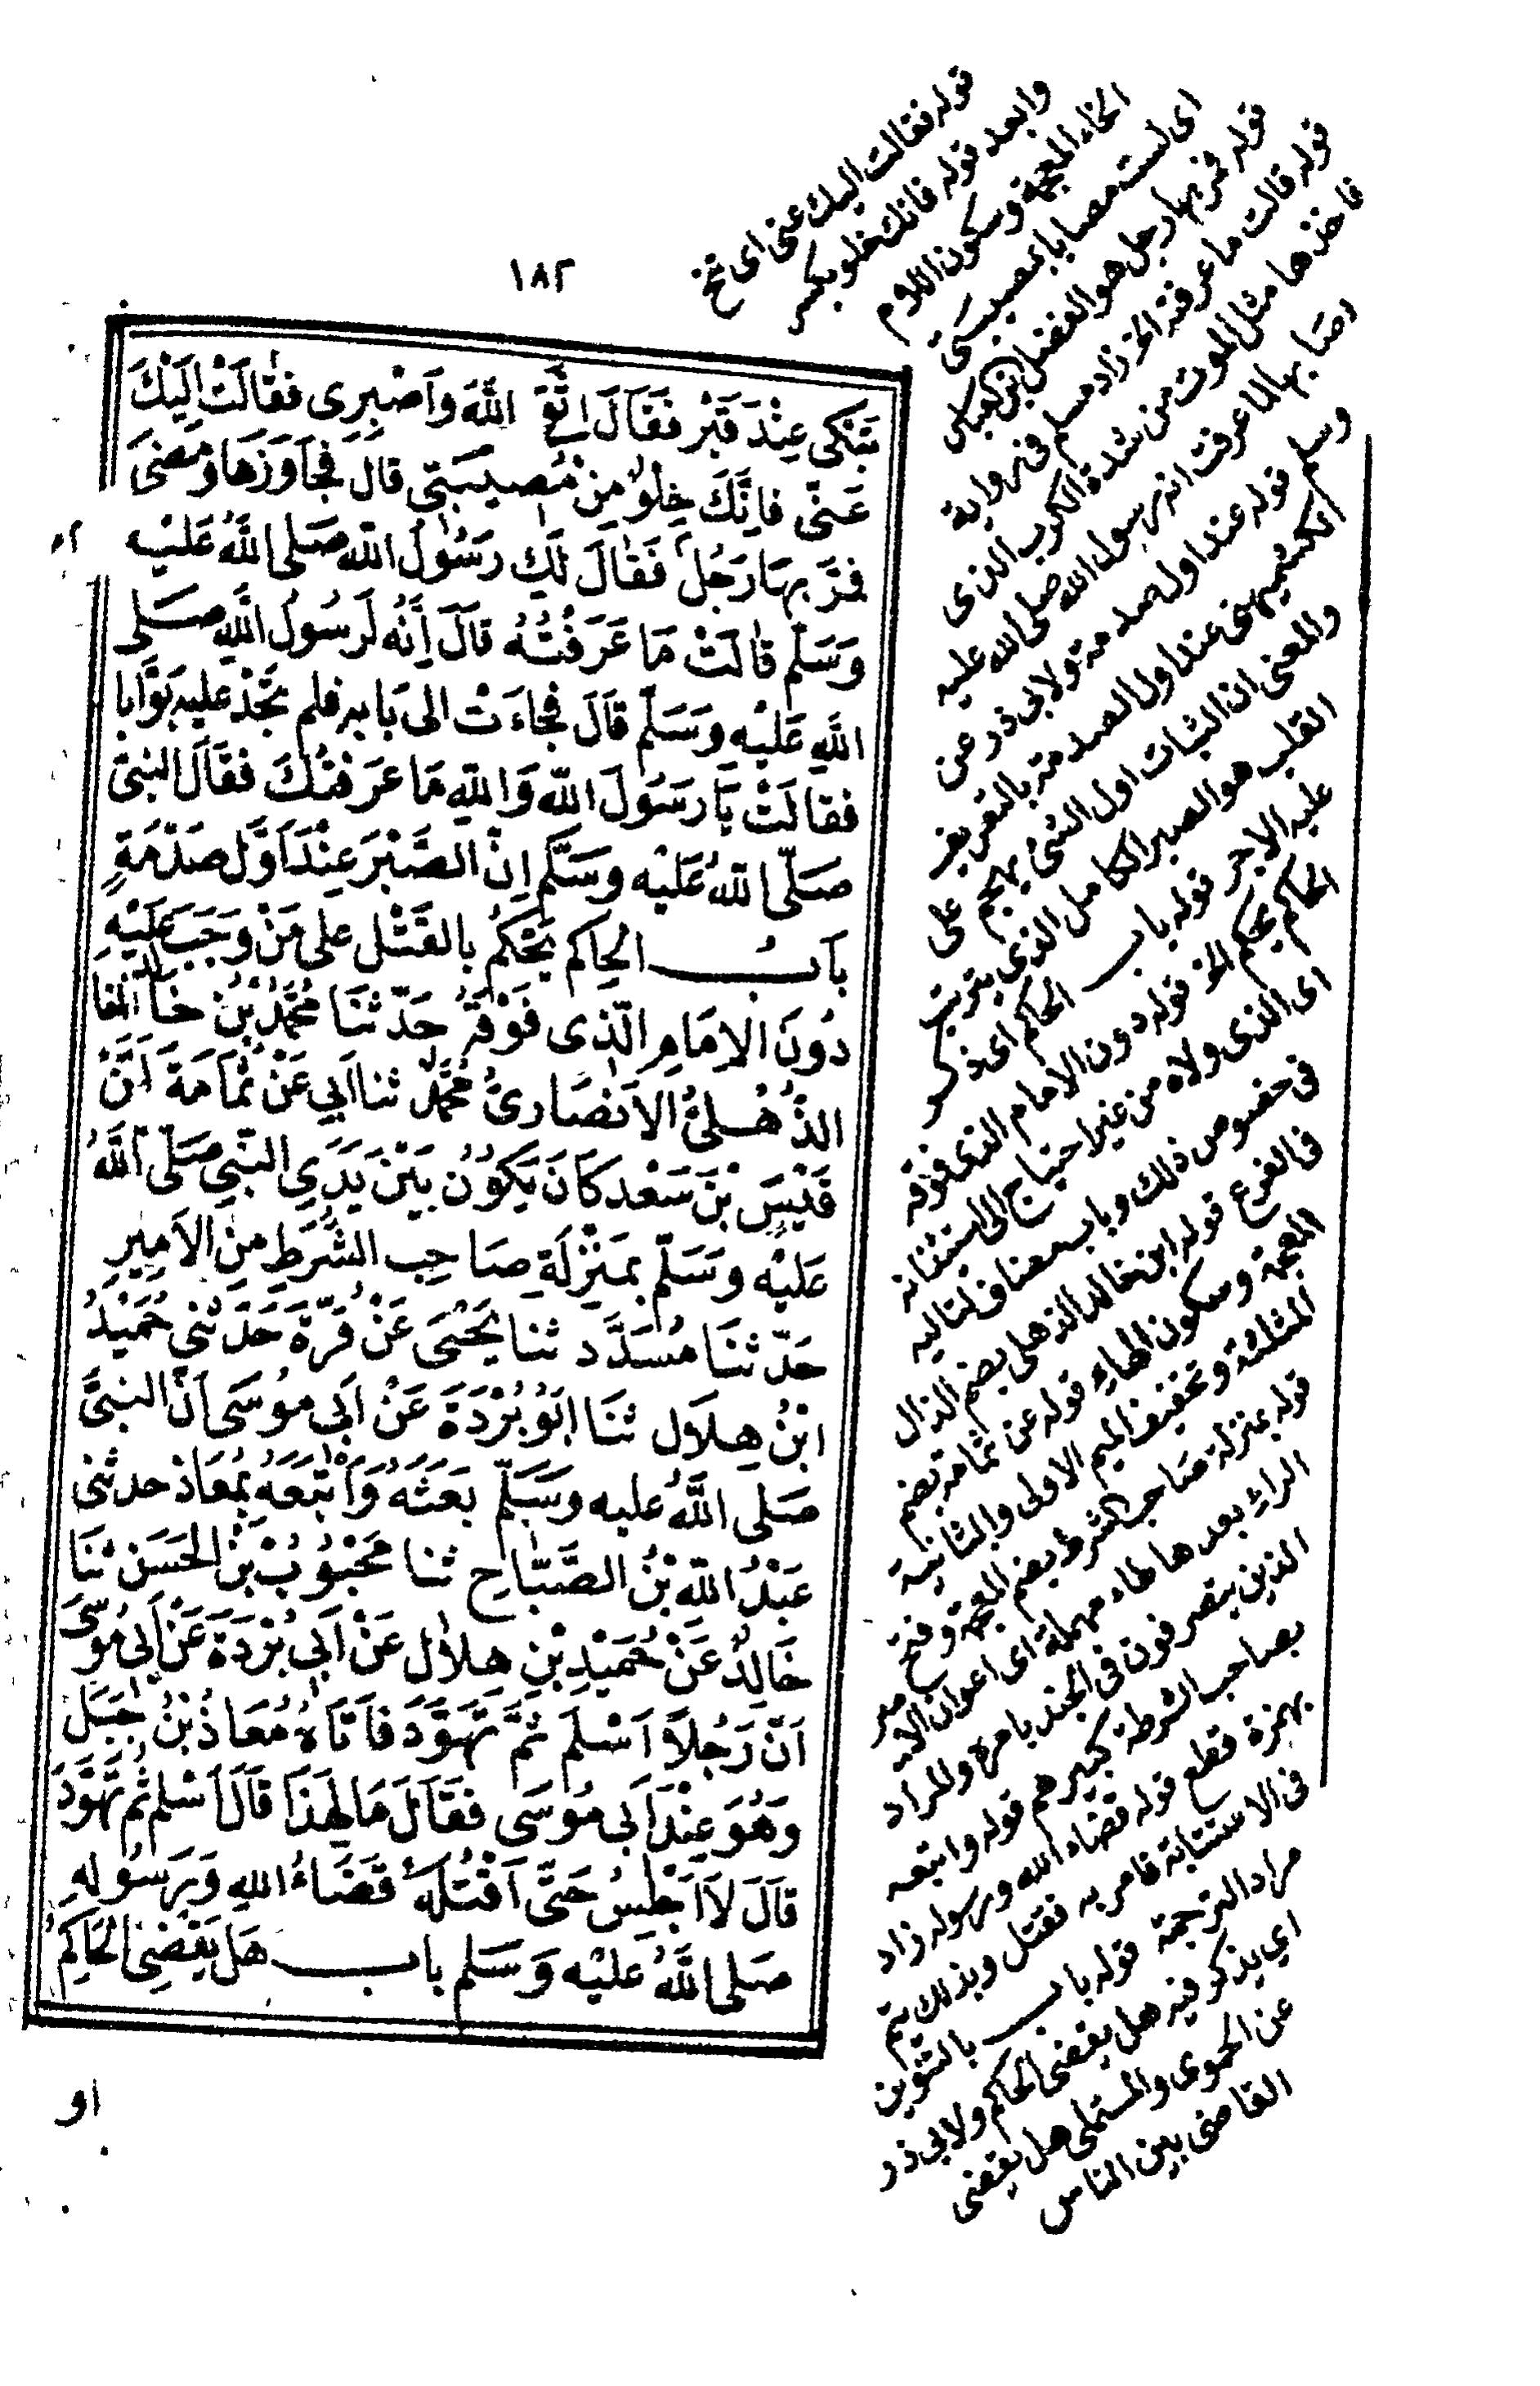 ١٨٢
تَبْكِي عِنْدَ قَبْرٍ فَقَالَ اتَّقِي اللَّهَ وَاصْبِرِى فَقَالَتْ اِلَيْكَ
عَنِّى فَاِنَّكَ خِلْوٌ مِنْ مُصِيبَتِى قَالَ فَجَاوَزَهَا وَمَضَى
فَمَرَّ بِهَا رَجُلٌ فَقَالَ لَكِ رَسُولُ اللّه صَلَّى اللَّهُ عَلَيْهِ
وَسَلَّمَ قَالَتْ مَا عَرَفْتُهُ قَالَ اِنَّهُ لَرَسُولُ اللَّهِ صَلَّى
اللَّهِ عَلَيْهِ وَسَلَّمَ قَالَ فَجَاءَتْ الى بَابِهِ فلم تَجِدْ عليه بَوَّابا
فقالَتْ يَا رَسُولَ اللّه وَاللّهِ مَا عَرَفْتُكَ فقَالَ النبىّ
صَلَّى اللَّهُ عَلَيْه وَسَلَّم اِنَّ الصَّبْرَ عِنْدَ اَوَّلِ صَدْمَةٍ
بَاب الحاكم يَحْكُمُ بالقَتْل عَلى مَنْ وَجَبَ عَلَيْهِ
دُونَ الاِمَامِ الَّذِى فَوْقَهُ حَدّثنَا مُحَمَّدُ بْنُ خَالِد
الذُّهْلِيُّ الاَنْصَارىُّ مُحَمَّدٌ ثنا اَبِي عَنْ ثُمَامَةَ اَنَّ
قَيْسَ بْنَ سَعْد كَانَ يَكُونُ بَيْنَ يَدَيِ النَّبِي صَلَّى اللَّهُ
عَلَيْهِ وَسَلَّم بِمَنْزِلَةِ صَاحِبِ الشُّرَطِ مِنَ الاَمِيرِ
حَدّثنَا مُسَدَّد ثنا يَحْيَى عَنْ قُرَّةَ حَدَّثَنِي حُمَيْدُ
ابْنُ هِلَال ثنَا اَبُو بُرْدَةَ عَنْ اَبِى مُوسَى اَنَّ النبىَّ
صَلى اللَّهُ عليه وَسَلَّم بَعَثَهُ وَاَتْبَعَهُ بِمُعَاذ حدثنى
عَبْدُ اللّه بْنُ الصَّبَّاحِ ثنا مَحْبُوبُ بْنُ الحَسَنِ ثنَا
خَالِدٌ عَنْ حُمَيْدِ بْنِ هِلَال عَنْ اَبِي بُرْدَةَ عَنْ اَبِى مُوسَى
اَنَّ رَجُلاً اَسْلَمَ ثُمَّ تَهَوَّدَ فَاَتَاهُ مُعَاذُ بْنُ جَبَلٍ
وَهُوَ عِنْدَ اَبِى مُوسَى فَقَالَ مَا لِهَذَا قَالَ اَسْلَمَ ثُمَّ تَهَوَّدَ
قَالَ لاَ اَجْلِسُ حَتَّى اَقْتُلَهُ قَضَاءُ اللهِ وَرَسُولِهِ
صَلى اللَّهُ عَلَيْه وَسَلم باب هَل يَقْضِى الحَاكِمُ
او
قوله فقالت اليك عنى اى تنح
وابعد قوله فانك خلو بكسر
الخاء المعجمة وسكون اللام
اى لست مصابا بمصيبتى
قوله فمر بها رجل هو الفضل بن
قوله قالت ما عرفته الخ زاد مسلم فى رواية
فاخذها مثل الموت من شدة الكرب الذى
اصابها لما عرفت انه رسول الله صلى الله عليه
وسلم قوله عند اول صدمة ولابى ذر عن
الكشميهنى عند اول الصدمة بالتعريف
والمعنى ان الثبات اول الشئ يهجم على
القلب هو الصبر الكامل الذى يترتب
عليه الاجر قوله باب الحاكم اى ذكر
الحاكم يحكم الخ قوله دون الامام الذى فوقه
اى الذى ولاه من غير احتياج الى استئذانه
فى خصوص ذلك وباب مضاف لتاليه
فالفرع قوله ابن خالد الذهلى بضم الذال
المعجمة وسكون الهاء قوله عن ثمامة بضم
المثلثة وتخفيف الميم الاولى والثانية
قوله بمنزلة صاحب الشرط بضم المعجمة وفتح
الراء بعدها طاء مهملة اى اعوان الامير
الذين يتصرفون فى الجند بامره والمراد
بصاحب الشرطة كبيرهم قوله واتبعه
بهمزة قطع قوله قضاء الله ورسوله زاد
فى الاستتابة فامر به فقتل وبذلك يتم
مراد الترجمة قوله باب بالتنوين
اي يذكر فيه هل يقضى الحاكم ولابى ذر
عن الحموى والمستملى هل يقضى
القاضى بين الناس